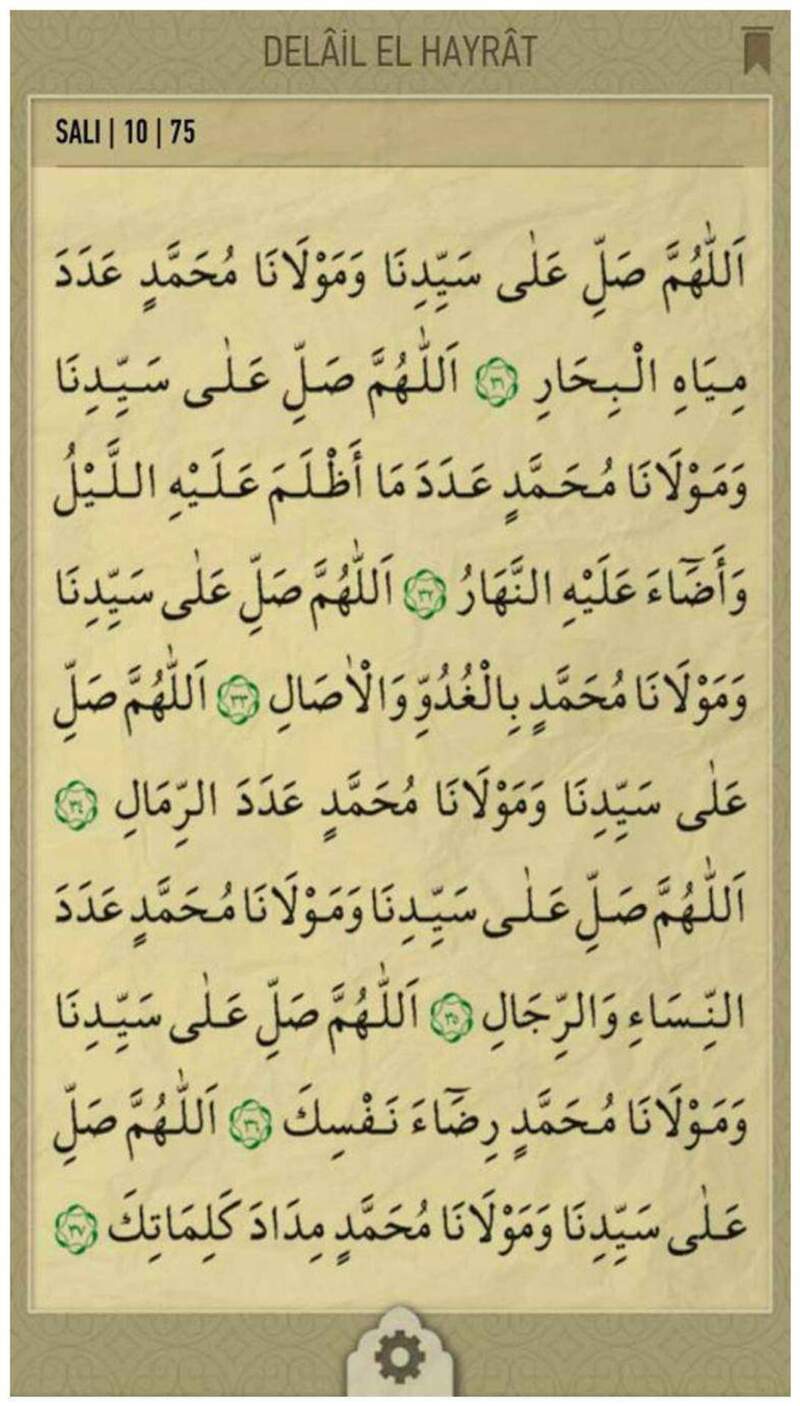 DELÂİL EL HAYRÂT
SALI | 10 | 75
اَللّٰهُمَّ صَلِّ عَلٰى سَيِّدِنَا وَمَوْلَانَا مُحَمَّدٍ عَدَدَ
مِيَاهِ الْبِحَارِ ٣١ اَللّٰهُمَّ صَلِّ عَلٰى سَيِّدِنَا
وَمَوْلَانَا مُحَمَّدٍ عَدَدَ مَا أَظْلَمَ عَلَيْهِ اللَّيْلُ
وَأَضَٓاءَ عَلَيْهِ النَّهَارُ ٣٢ اَللّٰهُمَّ صَلِّ عَلٰى سَيِّدِنَا
وَمَوْلَانَا مُحَمَّدٍ بِالْغُدُوِّ وَالْاٰصَالِ ٣٣ اَللّٰهُمَّ صَلِّ
عَلٰى سَيِّدِنَا وَمَوْلَانَا مُحَمَّدٍ عَدَدَ الرِّمَالِ ٣٤
اَللّٰهُمَّ صَلِّ عَلٰى سَيِّدِنَا وَمَوْلَانَا مُحَمَّدٍ عَدَدَ
النِّسَاءِ وَالرِّجَالِ ٣٥ اَللّٰهُمَّ صَلِّ عَلٰى سَيِّدِنَا
وَمَوْلَانَا مُحَمَّدٍ رِضَٓاءَ نَفْسِكَ ٣٦ اَللّٰهُمَّ صَلِّ
عَلٰى سَيِّدِنَا وَمَوْلَانَا مُحَمَّدٍ مِدَادَ كَلِمَاتِكَ ٣٧